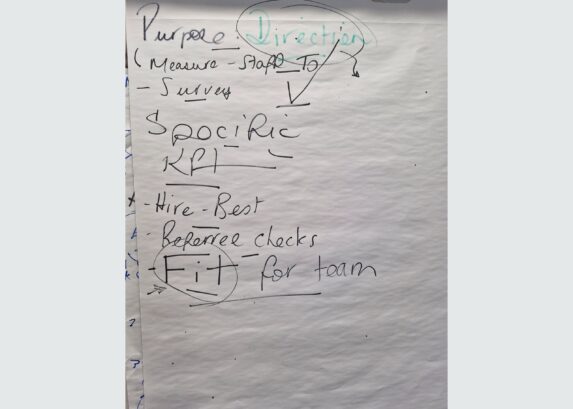 Purpose: Direction
(Measure - Staff To
- Survey
Specific
KPI
- Hire - Best
- Referree checks
- Fit for team